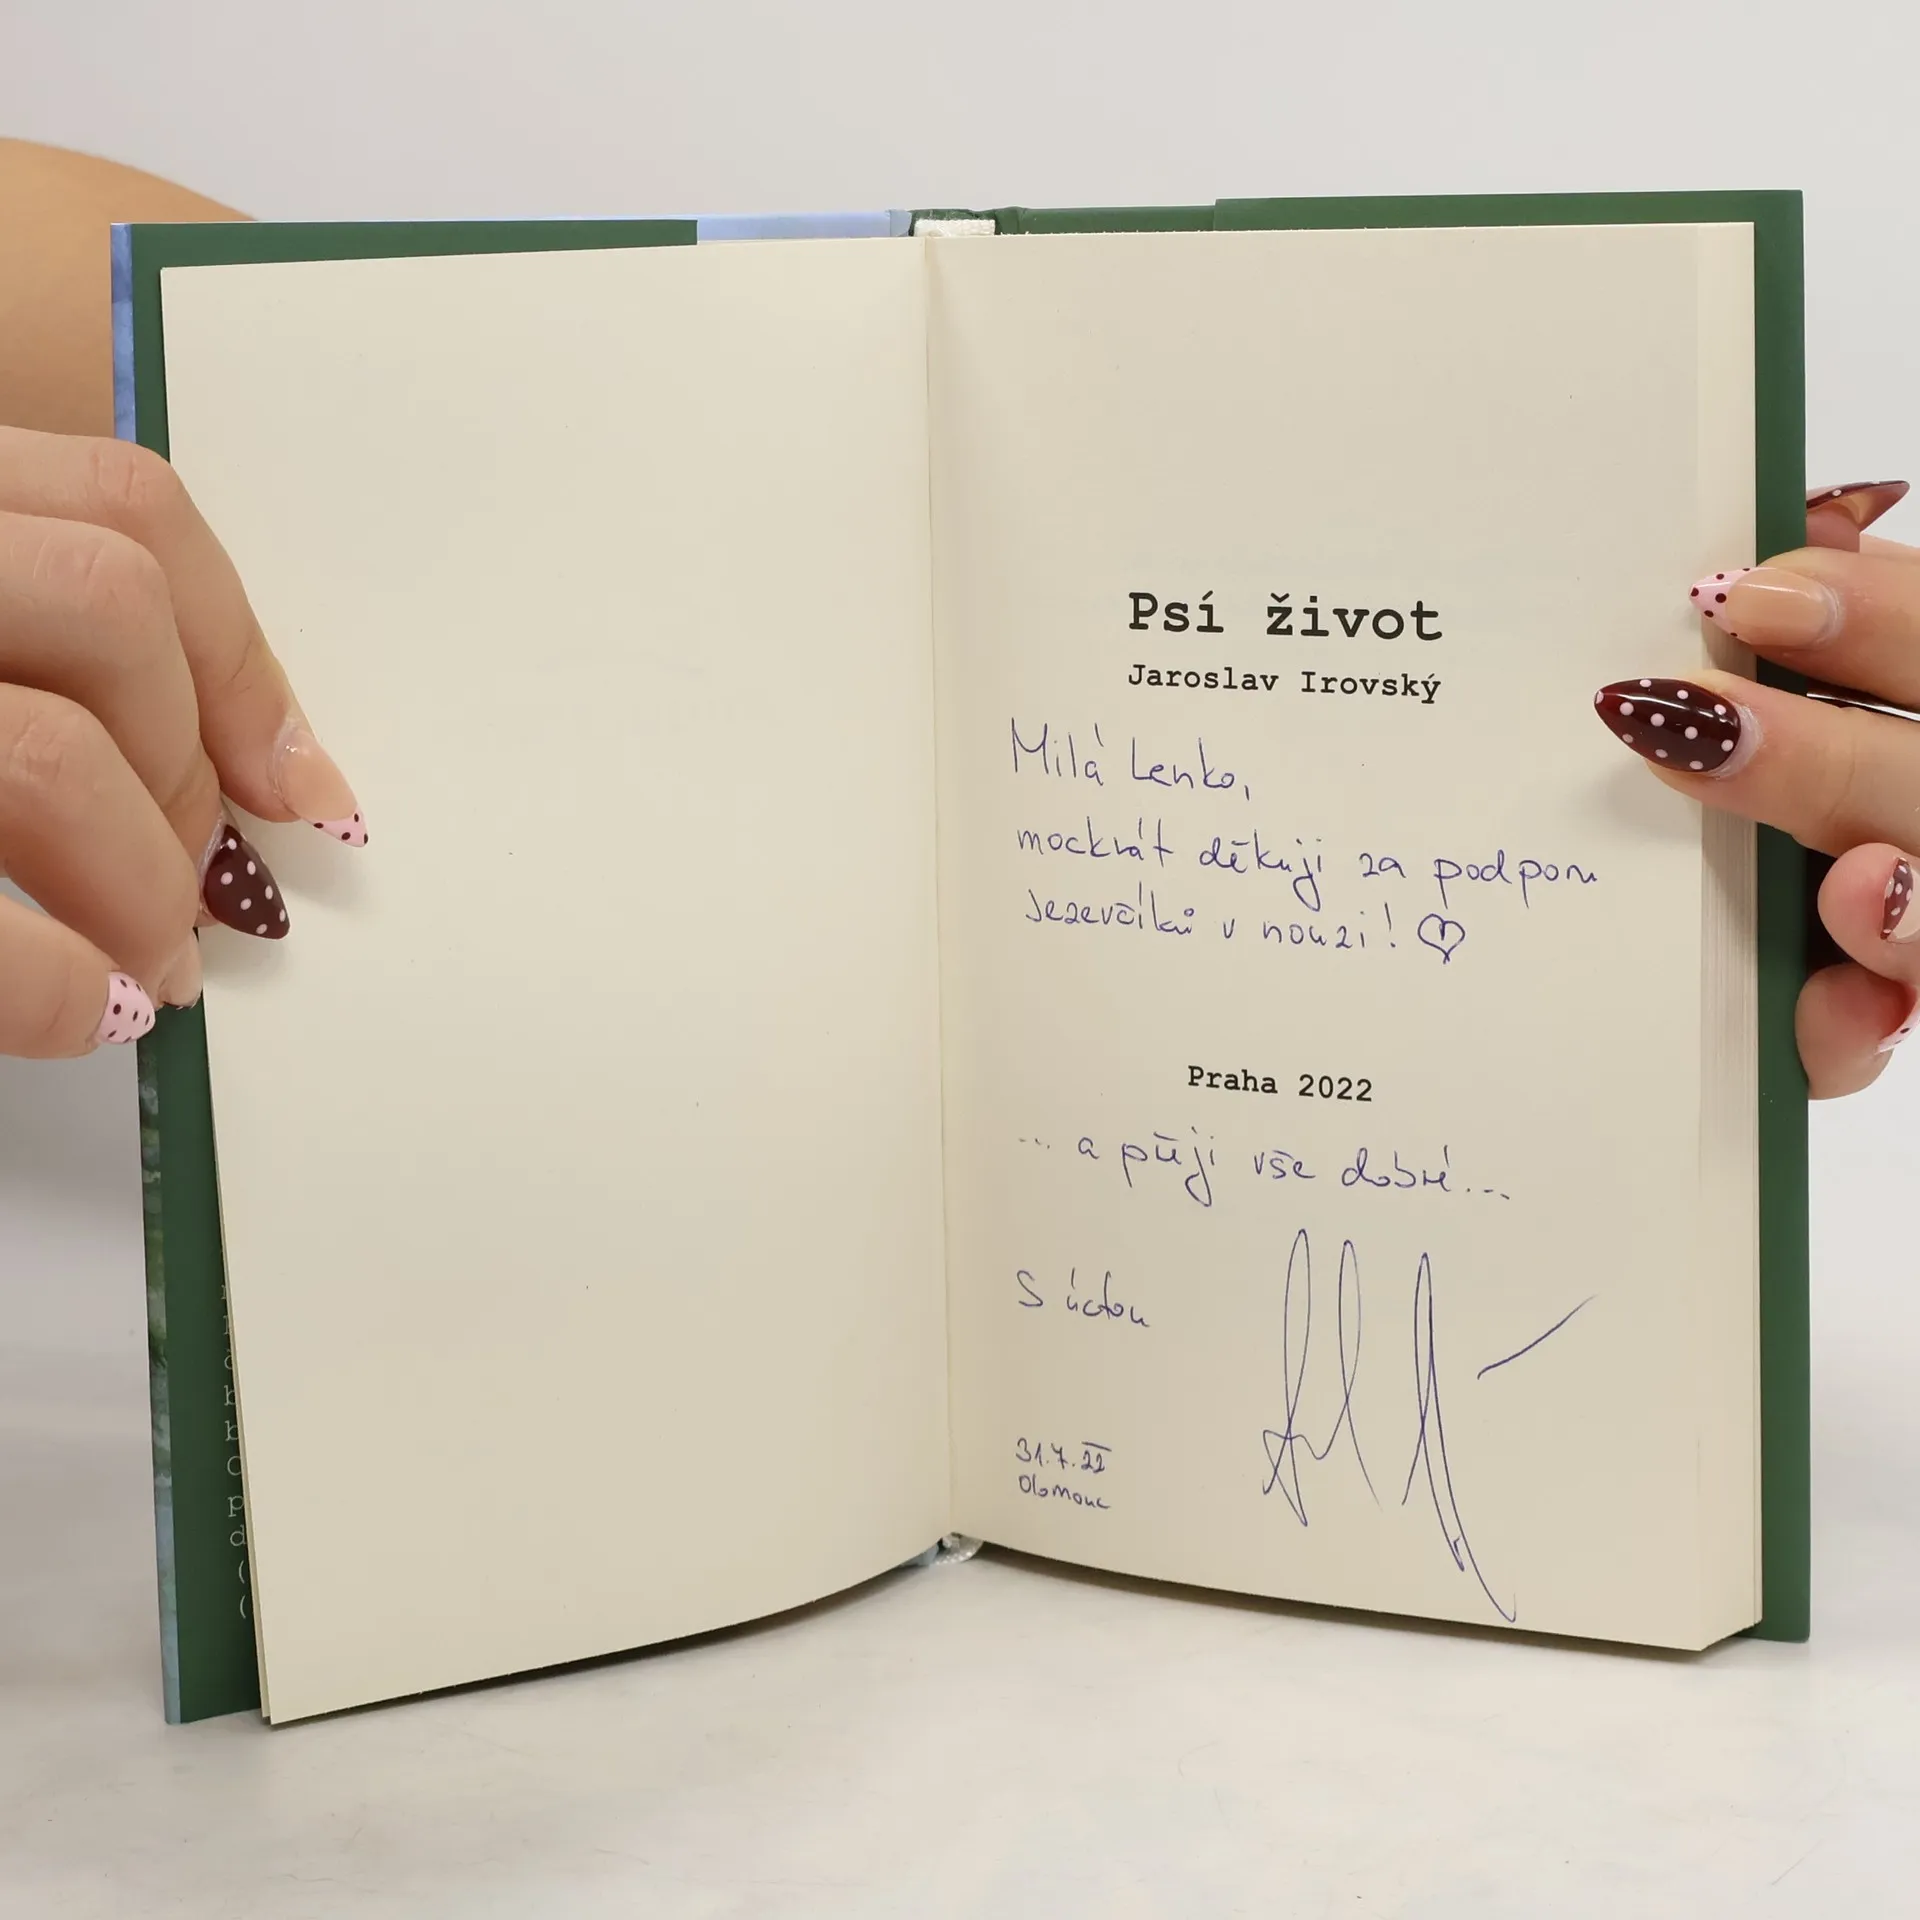 Psí život
Jaroslav Irovský
Milá Lenko,
mockrát děkuji za podporu
Jezevčíků v nouzi! ♡
Praha 2022
... a přeji vše dobré...
S úctou
31.7.22
Olomouc